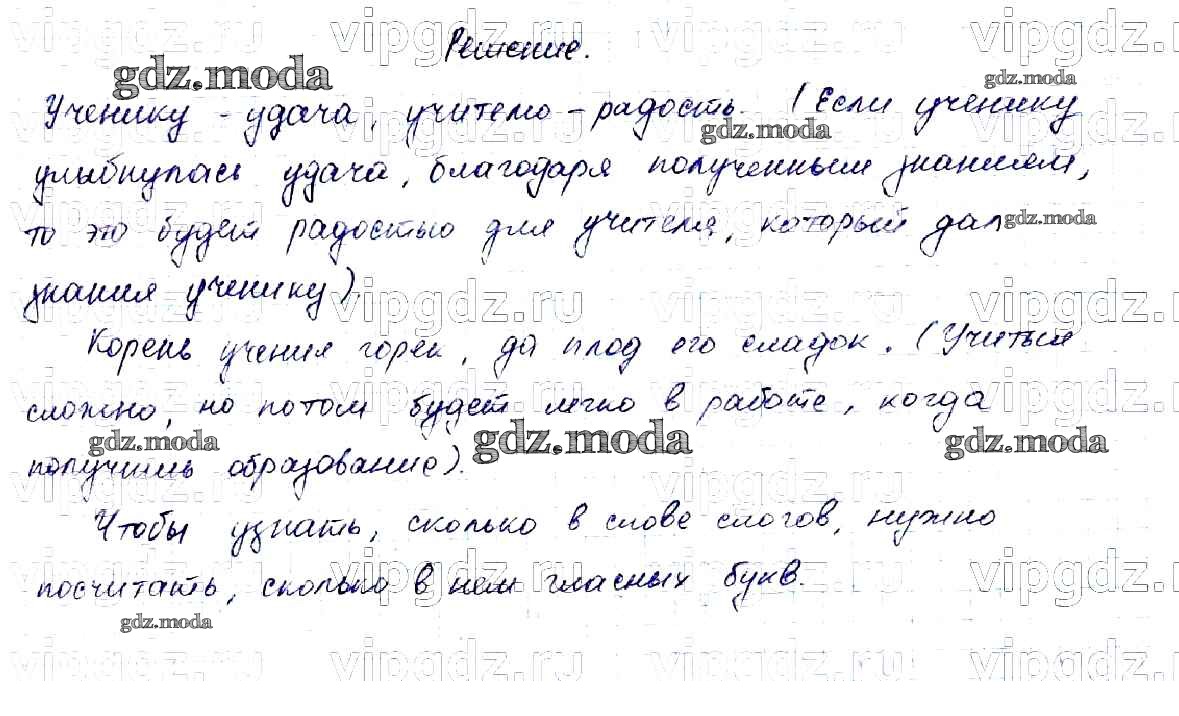 Решение.
Ученику - удача, учителю - радость. (Если ученику
улыбнулась удача, благодаря полученным знаниям,
то это будет радостью для учителя, который дал
знания ученику).
Корень учения горек, да плод его сладок. (Учиться
сложно, но потом будет легко в работе, когда
получишь образование).
Чтобы узнать, сколько в слове слогов, нужно
посчитать, сколько в нем гласных букв.
gdz.moda
gdz.moda
gdz.moda
gdz.moda
gdz.moda
gdz.moda
gdz.moda
gdz.moda
vipgdz.ru